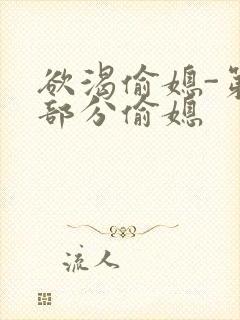 欲渴偷媳-第
部分偷媳
流人